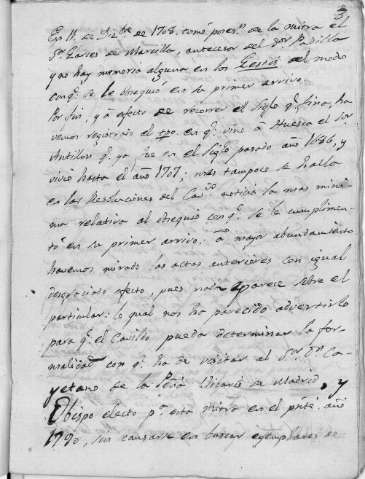 En 11 de de 1708. tomó poses.n de la mitra el
S.or Garces de Marcilla, antecesor del S.or Padilla
y no hay memoria alguna en los Gestis del modo
con q.e se le obsequió en su primer arrivo.
Por fin, y a efecto de recorrer el siglo q.e finó, ha-
vemos registrado el en q.e vino a Huesca el S.or
Antillon q.e ya fue en el siglo pasado año 1686, y
vivió hasta el año 1707; mas tampoco se halla
en las Resoluciones del Cav.do noticia la mas mini-
ma relativa al obsequio con q.e se le cumplimen-
tó en su primer arrivo. a mayor abundamiento
havemos mirado las actas anteriores con igual
desgraciado efecto, pues nada aparece sobre el
particular: lo qual nos ha parecido advertirlo
para q.e el Cavildo pueda determinar la for-
malidad con q.e ha de visitar al S.or D.n Ca-
yetano de la Peña Vicario de Madrid, y
Obispo electo p.a esta Mitra en el pñte. año
1790, sin cansarse en buscar exemplares de